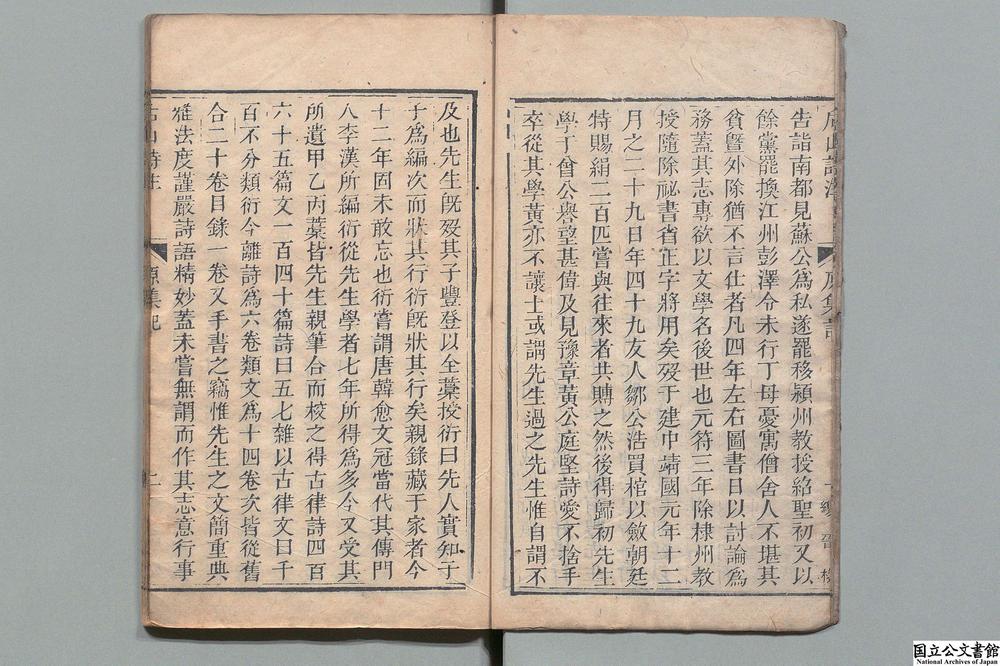 后山詩注
原集記
告詣南都見蘇公為私遂罷移潁州教授紹聖初又以
餘黨罷換江州彭澤令未行丁母憂寓僧舍人不堪其
貧曁外除猶不言仕者凡四年左右圖書日以討論為
務蓋其志專欲以文學名後世也元符三年除棣州教
授隨除祕書省正字將用矣歿于建中靖國元年十二
月之二十九日年四十九友人鄒公浩買棺以斂朝廷
特賜絹二百匹嘗與往來者共賻之然後得歸初先生
學于曾公譽望甚偉及見豫章黃公庭堅詩愛不捨手
卒從其學黃亦不讓士或謂先生過之先生惟自謂不
及也先生旣歿其子豐登以全藁授衍曰先人實知于
子為編次而狀其行衍旣狀其行矣親錄藏于家者今
十二年固未敢忘也衍嘗謂唐韓愈文冠當代其傳門
人李漢所編衍從先生學者七年所得為多今又受其
所遺甲乙丙藁皆先生親筆合而校之得古律詩四百
六十五篇文一百四十篇詩曰五七雜以古律文曰千
百不分類衍今離詩為六卷類文為十四卷次皆從舊
合二十卷目錄一卷又手書之竊惟先生之文簡重典
雅法度謹嚴詩語精妙蓋未嘗無謂而作其志意行事
后山詩注
原集記
二
国立公文書館
National Archives of Japan